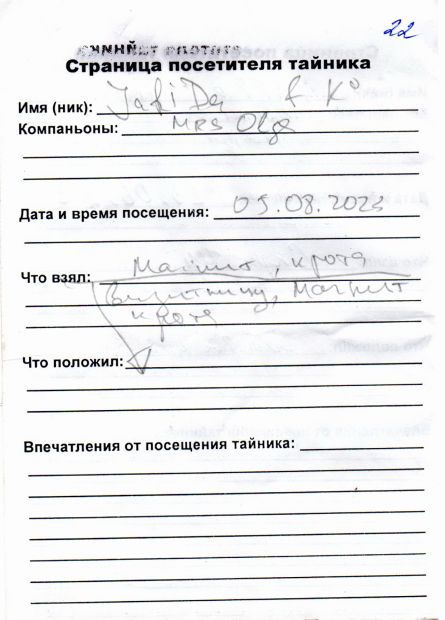 22
Страница посетителя тайника
Имя (ник): f K°
Компаньоны: MRS Olga
Дата и время посещения: 05.08.2023
Что взял: Магнит, крота
Визитницу, Магнит
крота
Что положил:
Впечатления от посещения тайника: